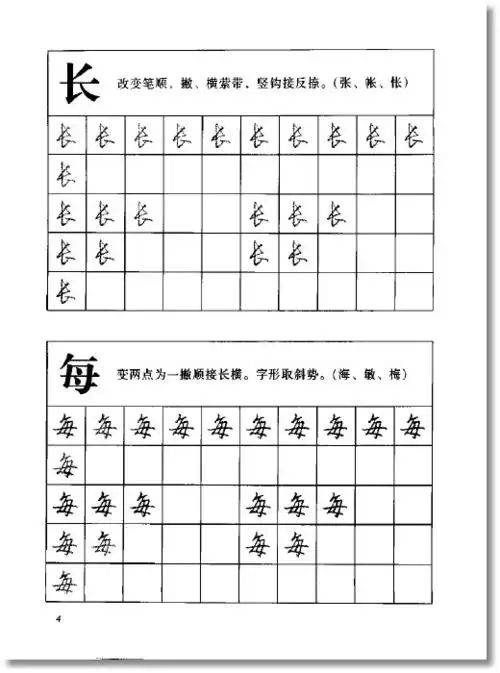 长 改变笔顺，撇、横萦带，竖钩接反捺。（张、帐、怅）
长 长 长 长 长 长 长 长 长 长
长
长 长 长 长 长 长
长 长 长 长
长
每 变两点为一撇顺接长横。字形取斜势。（海、敏、梅）
每 每 每 每 每 每 每 每 每 每
每
每 每 每 每 每 每
每 每 每 每
每
4